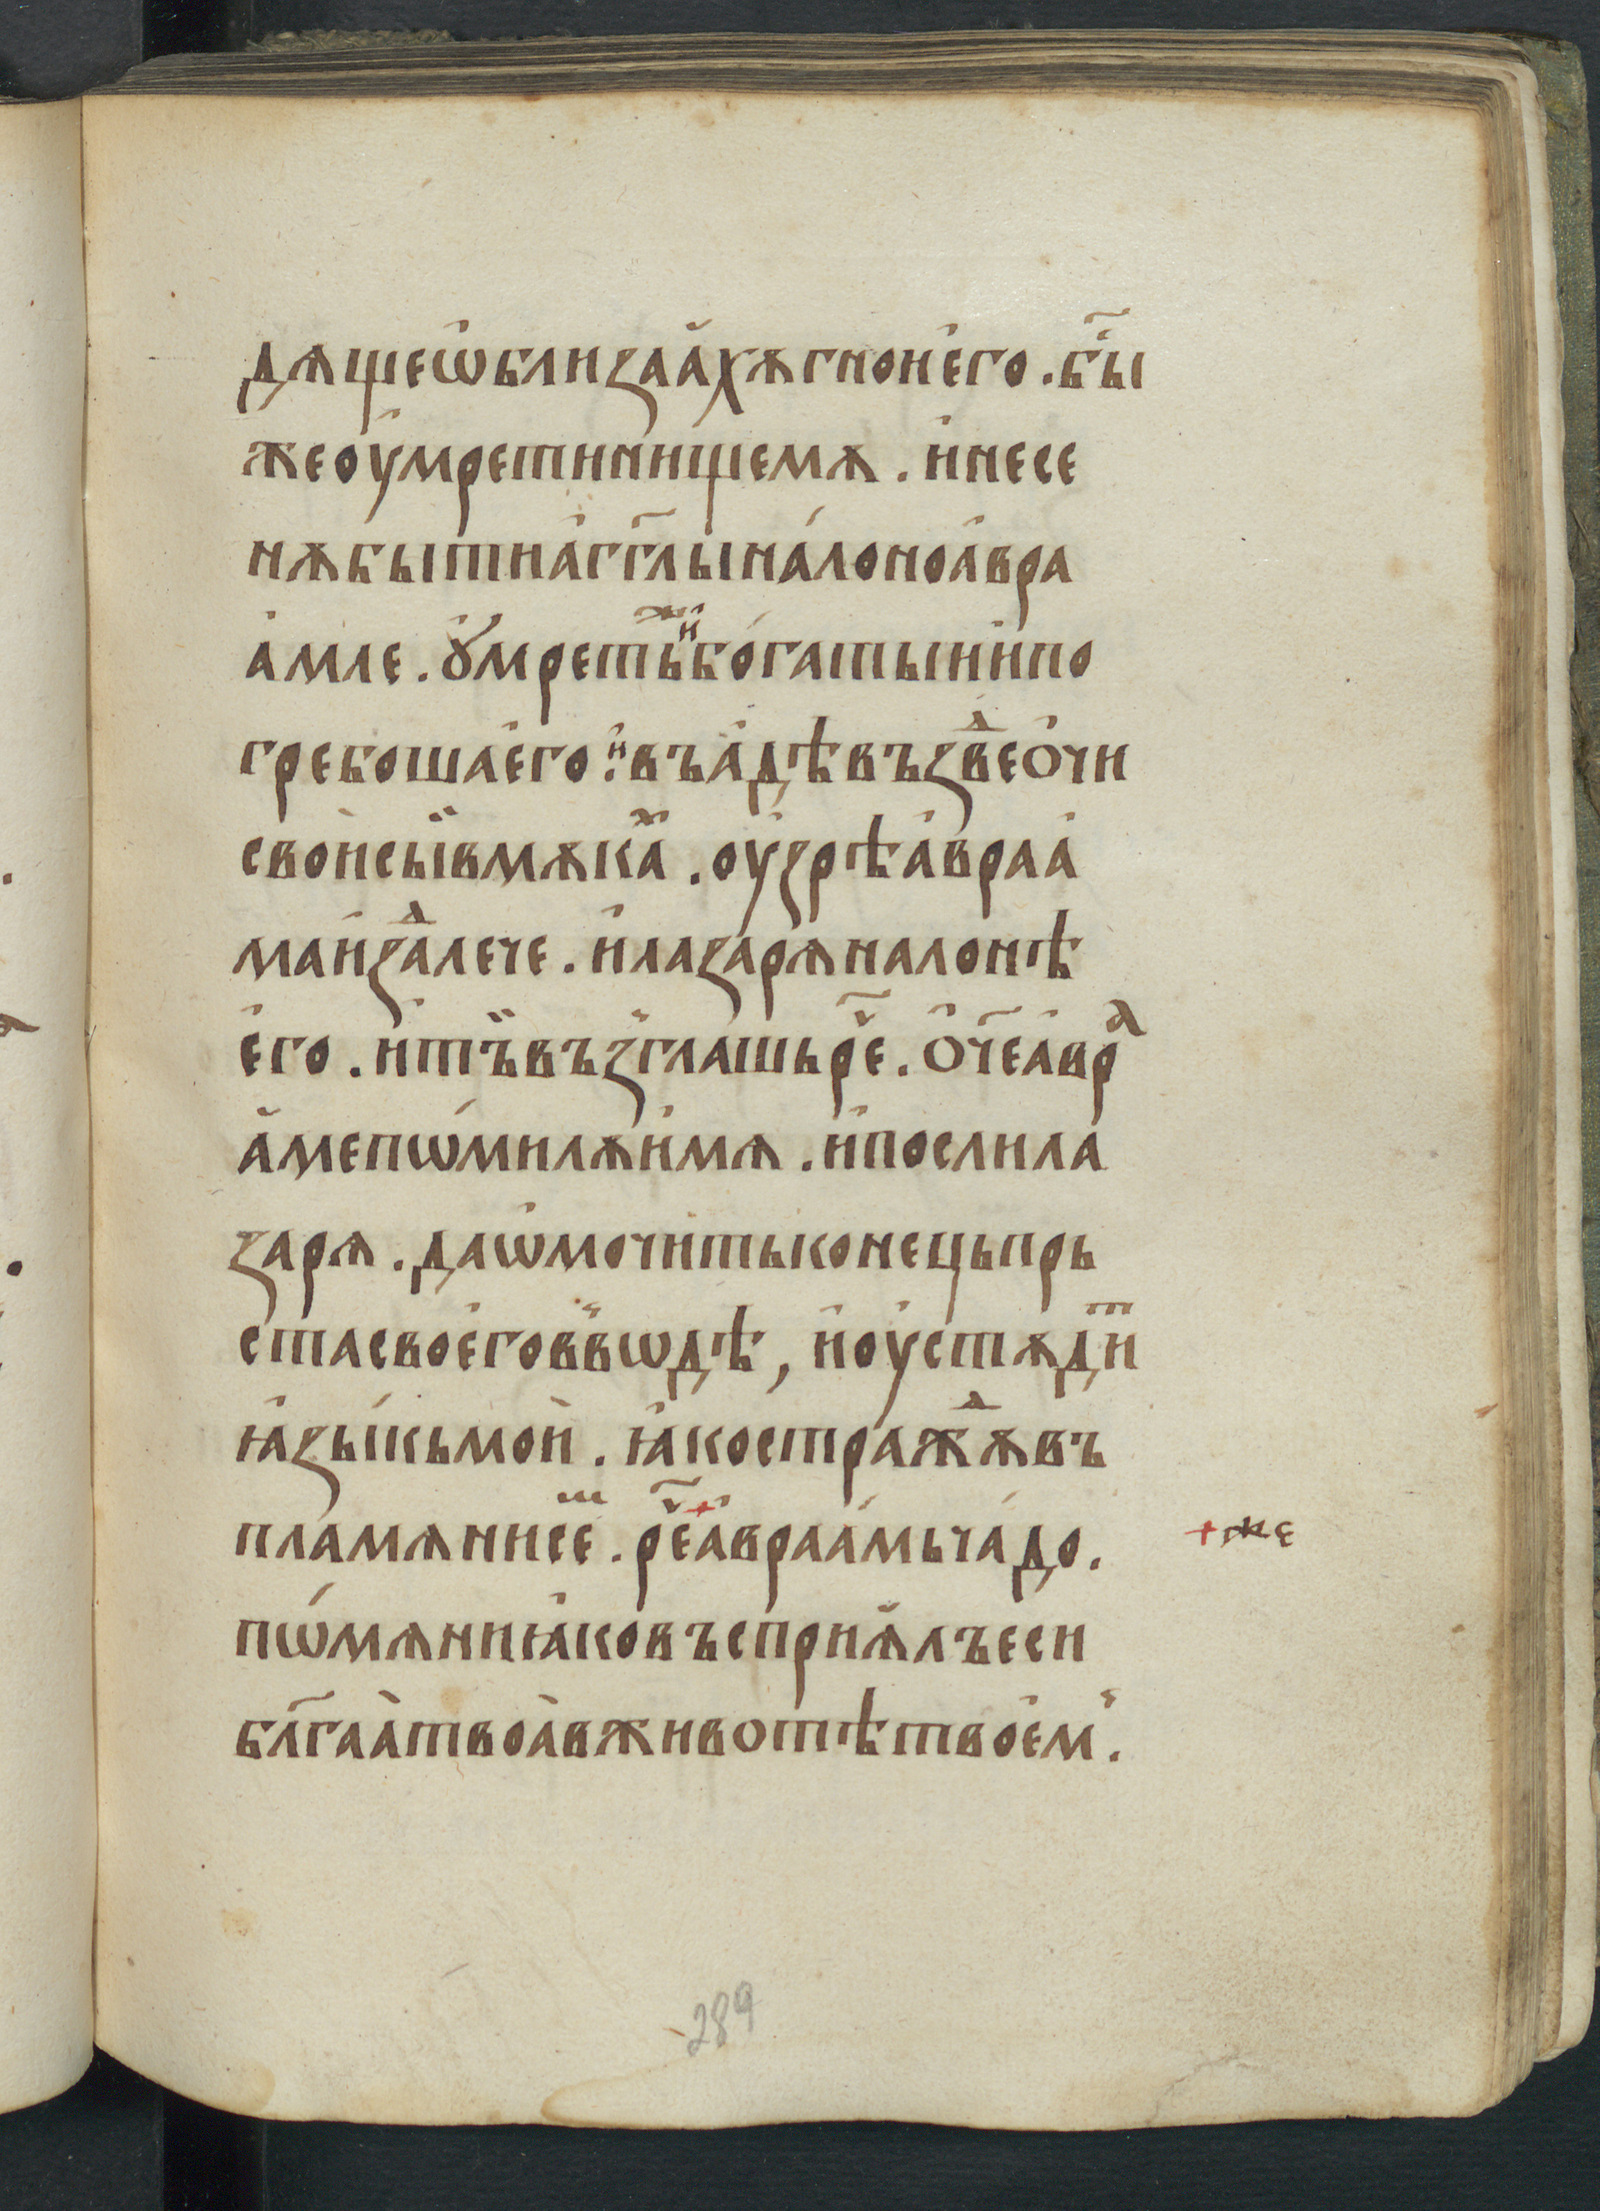 дѧщеѡ҆блиꙁаа҆хѫгноиего. бы҃
жеоу҆мретинищемѫ. и҆несе
нѫбытиа҆гг҃лынало́ноа҆вра
а҆мле. ꙋ҆мретьжⷤи҆бога́тыиипо
гребошае҆го. ивъа҆дѣвъꙁвеⷣо҆чи
свои҆сы̏ивмѫкаⷯ. оу҆ꙁрѣа҆враа҆
маи҆ꙁаⷣлече. и҆лаꙁарѧналонѣ
е҆го. и҆тъ̏въꙁглашьре҃. о҆ч҃еа҆врⷶ
а҆мепѡ́милѫи҆мѧ. и҆послила
ꙁарѧ. даѡ҆мочитьконецьпрь
стасвоего҆в̏вѡдѣ, и҆оу҆стѫдиⷮ
ꙗ҆ꙁы́кьмои̇. ꙗ҆костражⷣѫвъ
пла́мѧнисеⷨ. ре҃а҆враа́мьча́до.
пѡ́мѧниꙗ҆ковъсприѧ҆лъеси
бл҃гаа҆твоа҆вживотѣтвое҆м̏.
+же
289